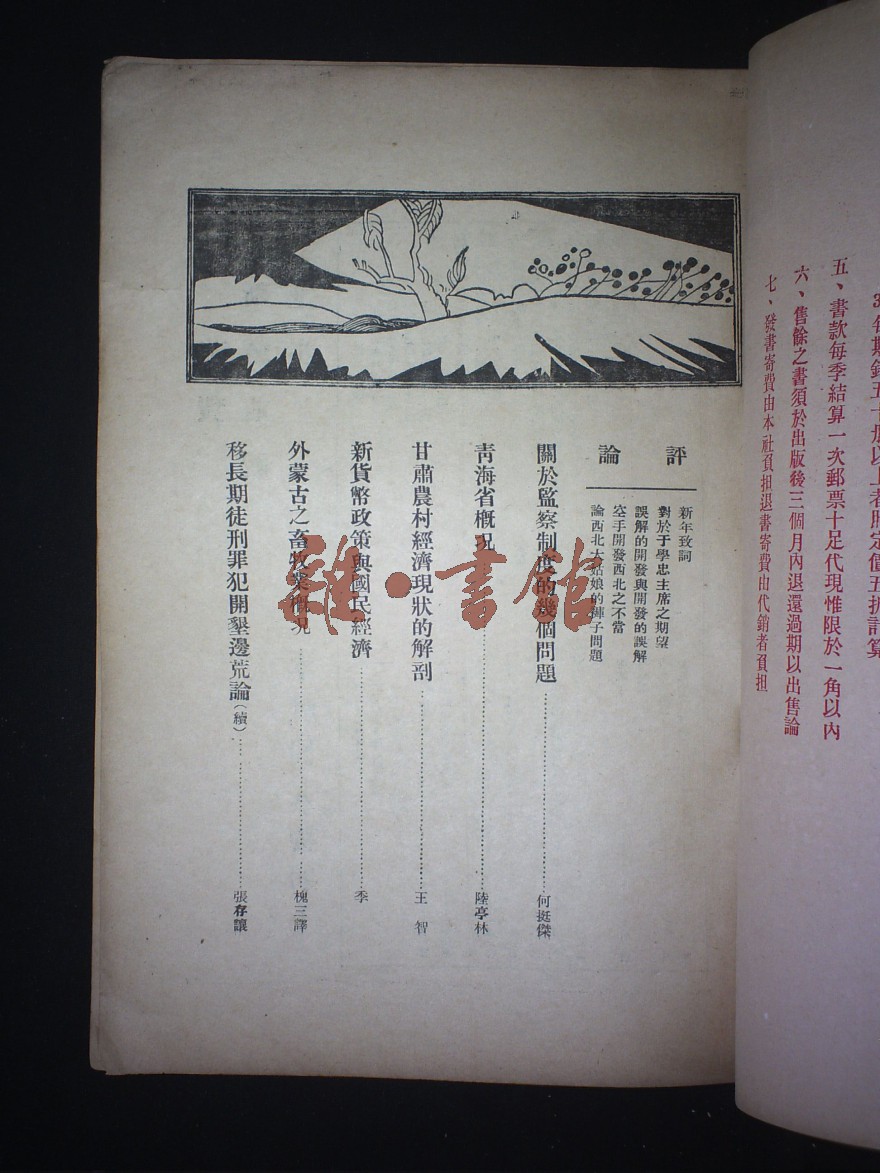 每期銷五十册以上者照定價五折計算
五、書款每季結算一次郵票十足代現惟限於一角以內
六、售餘之書須於出版後三個月內退還過期以出售論
七、發書寄費由本社負担退書寄費由代銷者負担
評論
新年致詞
對於于學忠主席之期望
誤解的開發與開發的誤解
空手開發西北之不當
論西北大姑娘的褲子問題
關於監察制度的幾個問題 何挺傑
青海省概况 陸亭林
甘肅農村經濟現狀的解剖 王智
新貨幣政策與國民經濟 季
外蒙古之畜牧業概况 槐三譯
移長期徒刑罪犯開墾邊荒論(續) 張存讓
雜·書館